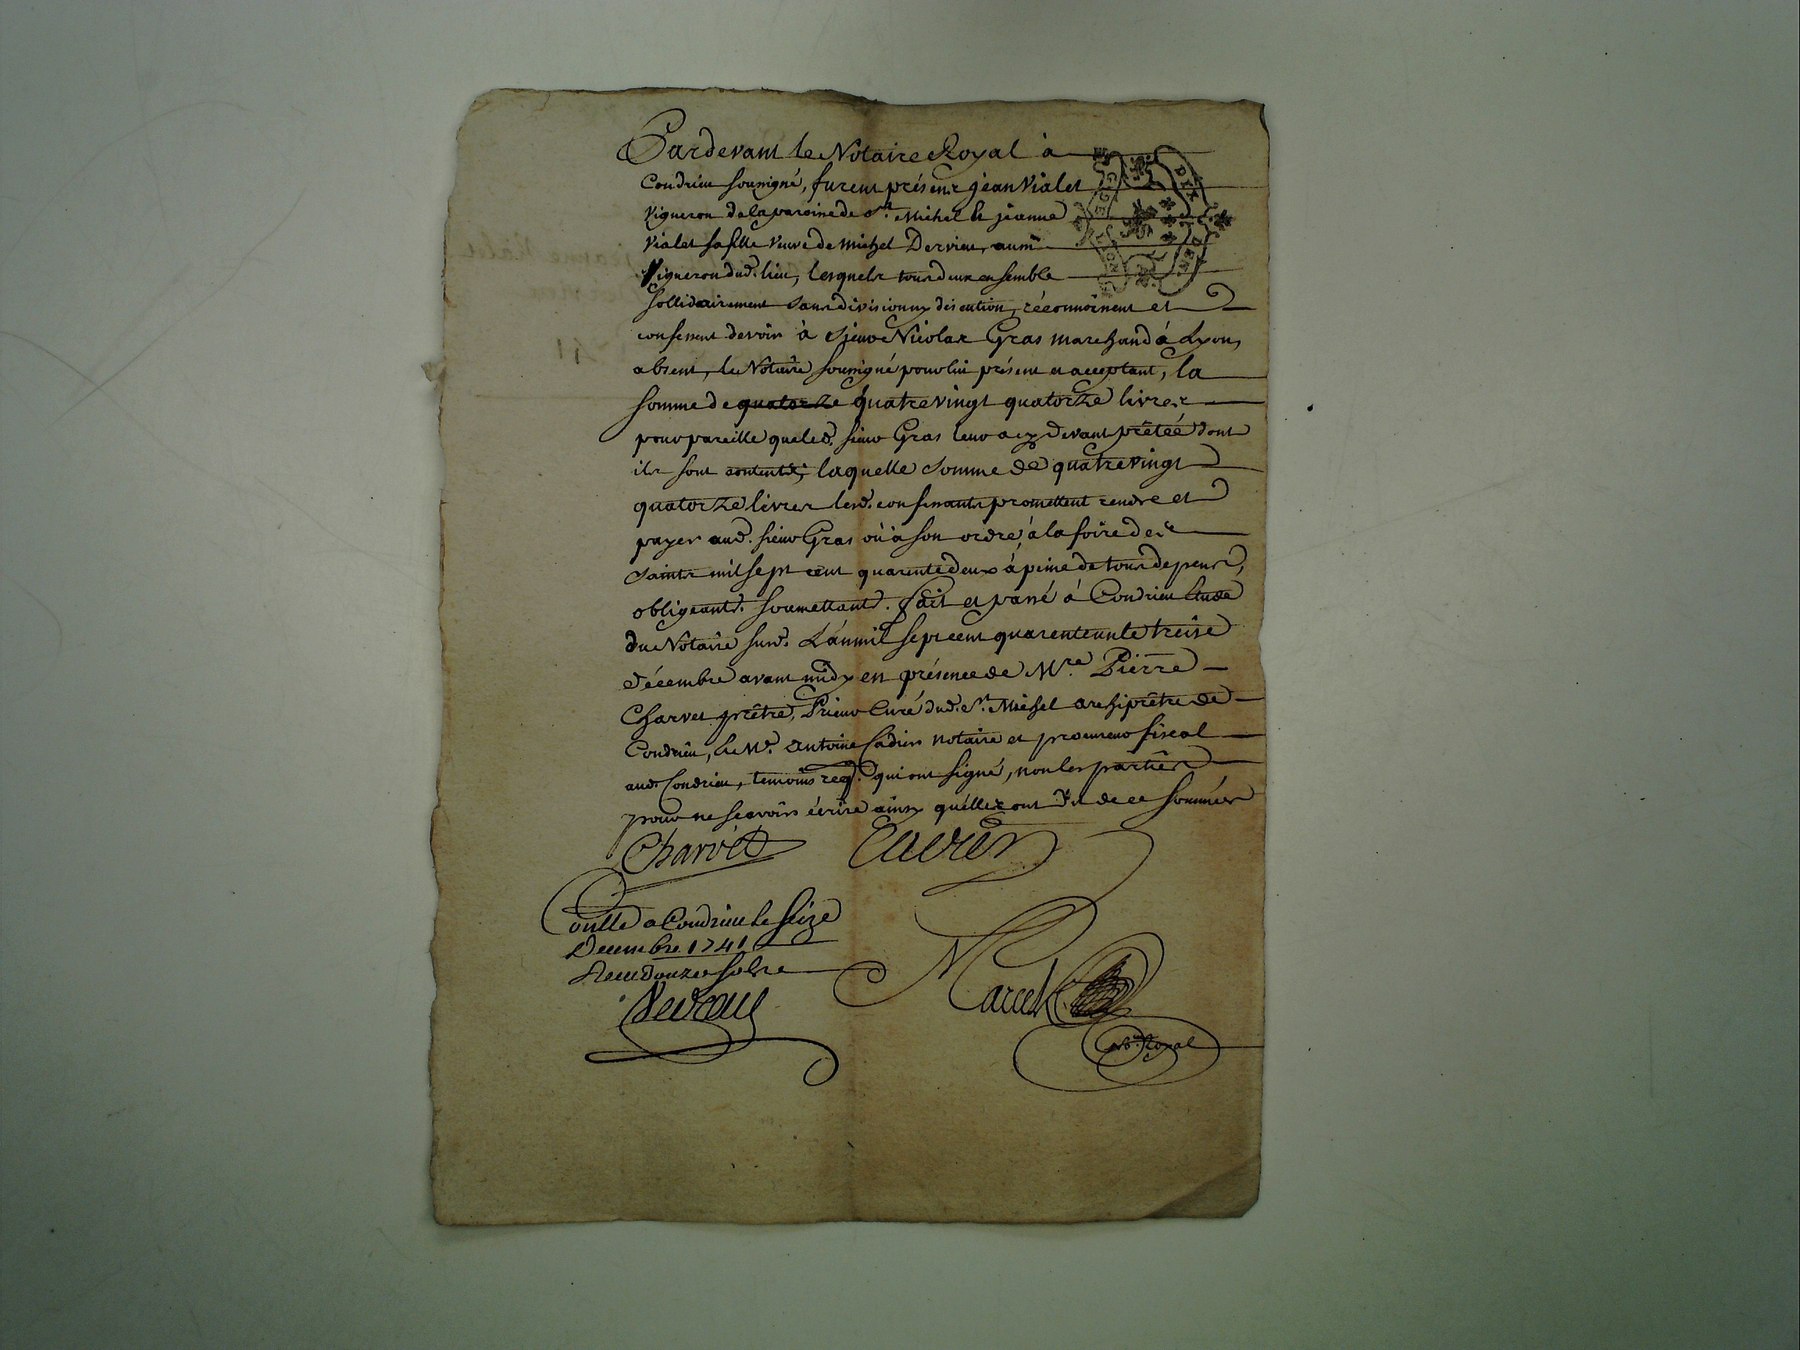 Pardevant le Notaire Royal à
Condrieu soussigné, furent présents jean Vialet
Vigneron de la paroisse de St. Michel & jeanne
Vialet sa fille veuve de michel Dervieu, aussi
Vigneron dud. lieu, lesquels tous deux ensemble
sollidairement sans division ny discution, réconnoissent et
confessent devoir à sieur Nicolas Gras marchand à Lyon,
absent, le Notaire soussigné pour lui présent et acceptant, la
somme de quatorze quatrevingt quatorze livres
pour pareille que led. sieur Gras leur a cy devant prêtéé dont
ils sont contents; laquelle somme de quatrevingt
quatorze livres lesd. confessants promettent rendre et
payer aud. sieur Gras où à son ordre, à la foire des
saints mil sept cent quarente deux à peine de tous depens,
obligeant. soumettant. fait et passé à Condrieu étude
du Notaire susd. L'an mil sept cent quarente un le treise
décembre avant midy en présence de Mre. Pierre
Charvet prêtre, Prieur Curé dud. St. Michel archiprêtre de
Condrieu, & Me. Antoine Cadier notaire et procureur fiscal
aud. Condrieu, temoins req. qui ont signé, non les parties
pour ne scavoir écrire ainsy qu'elles ont dit de ce sommées
Charvet Cadier
Conllé a Condrieu le seize
Decembre 1741
Receu douze sols
Marcel
Nore. Royal